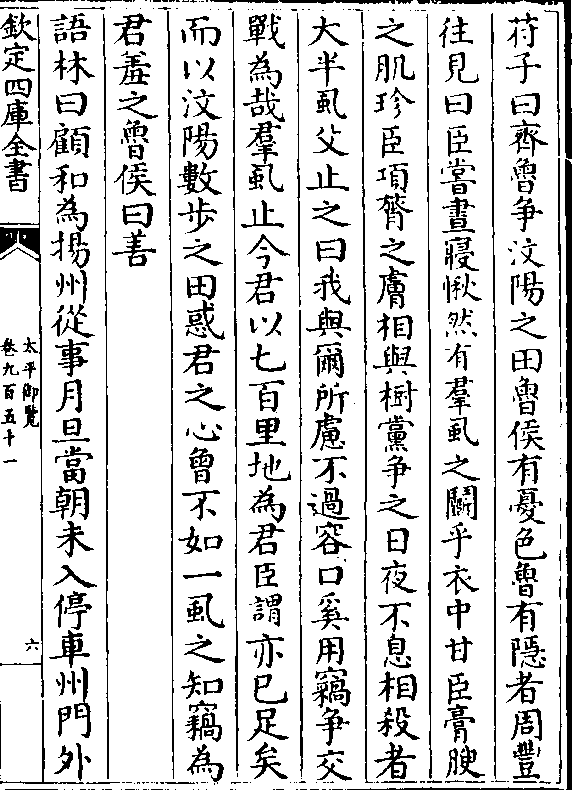 苻子曰齊魯争汶陽之田魯侯有憂色魯有隱者周豐
往見曰臣嘗晝寢愀然有羣虱之鬭乎衣中甘臣膏腴
之肌珍臣項膂之膚相與樹黨争之日夜不息相殺者
大半虱父止之曰我與爾所慮不過容口奚用竊争交
戰為哉羣虱止今君以七百里地為君臣謂亦已足矣
而以汶陽數步之田惑君之心曾不如一虱之知竊為
君羞之魯侯曰善
語林曰顧和為揚州從事月旦當朝未入停車州門外
欽定四庫全書
太平御覽
卷九百五十一
六